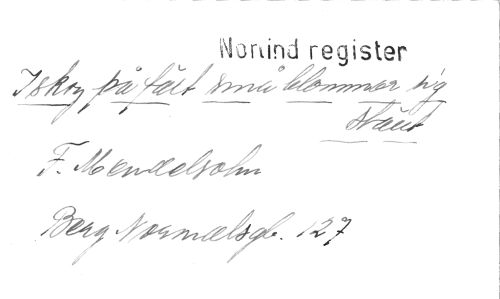 Nortind register
I skog på fält små blommor sig
F. Mendelsohn
Berg Normalsgb. 127